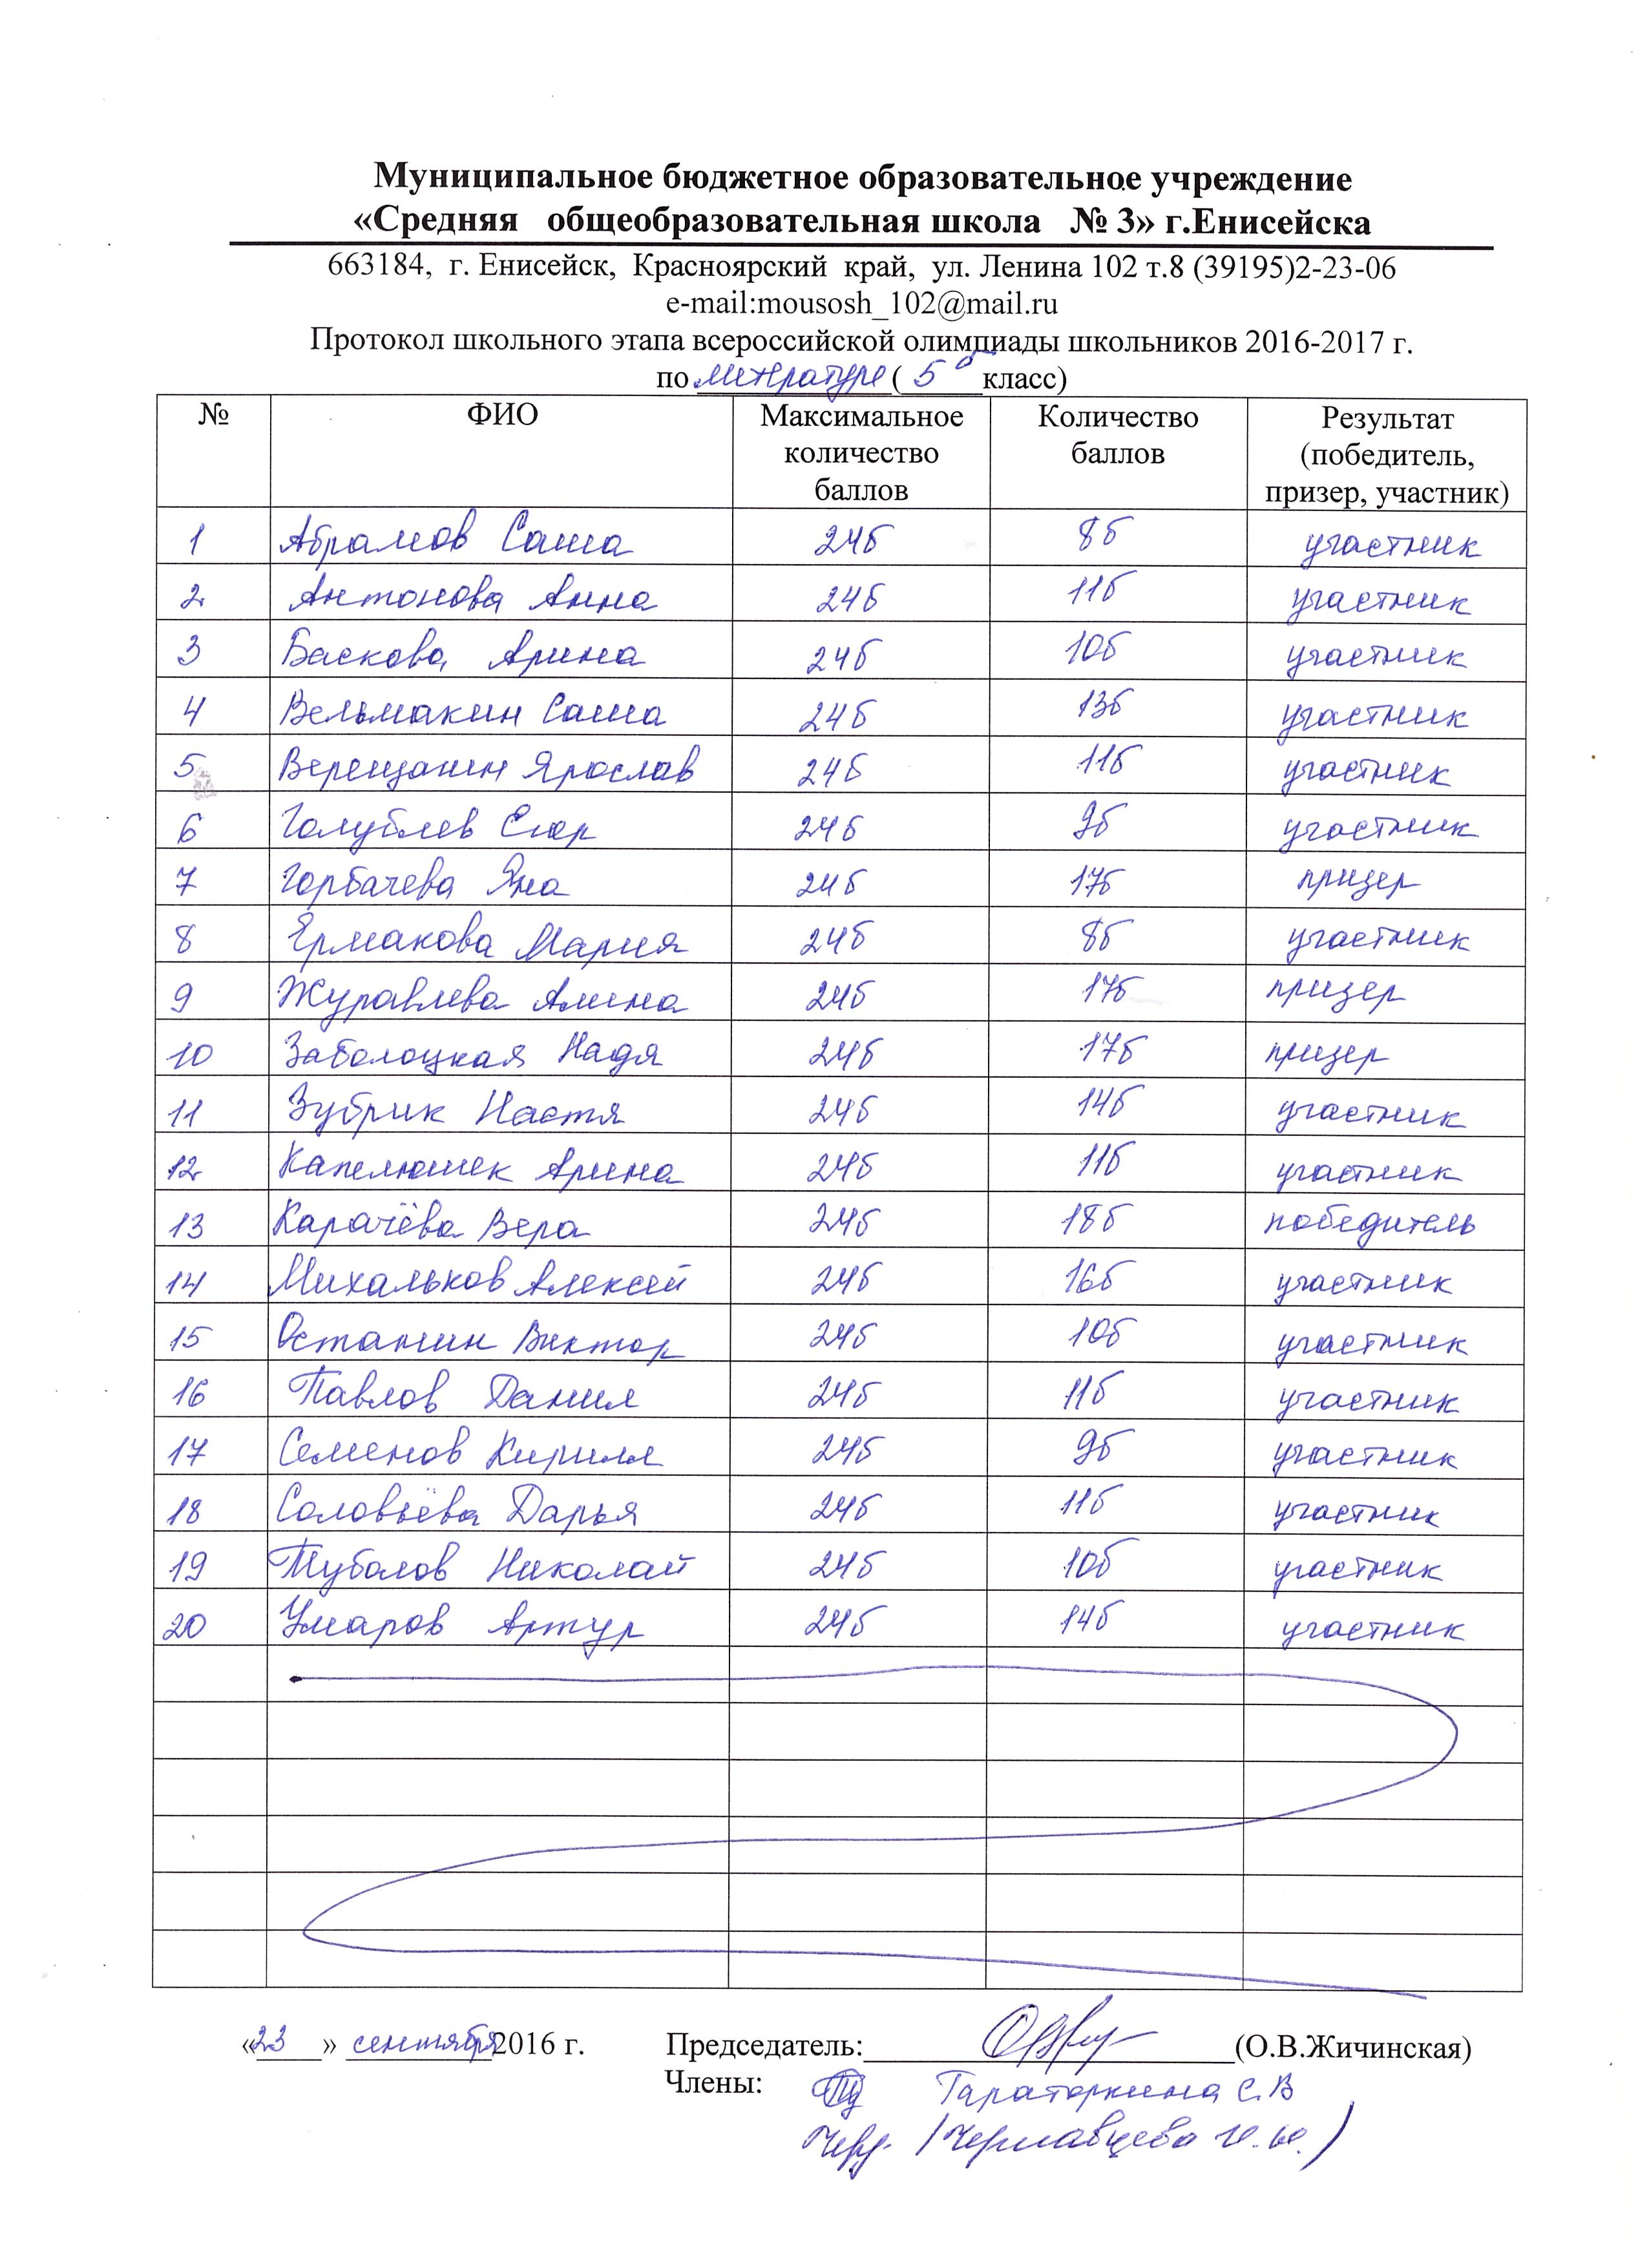 Муниципальное бюджетное образовательное учреждение
«Средняя общеобразовательная школа № 3» г.Енисейска
663184, г. Енисейск, Красноярский край, ул. Ленина 102 т.8 (39195)2-23-06
e-mail:mousosh_102@mail.ru
Протокол школьного этапа всероссийской олимпиады школьников 2016-2017 г.
по литературе ( 5 б класс)
№ ФИО Максимальное количество баллов Количество баллов Результат (победитель, призер, участник)
1 Абрамов Саша 24б 8б участник
2 Антонова Анна 24б 11б участник
3 Баскова Арина 24б 10б участник
4 Вельмакин Саша 24б 13б участник
5 Верещагин Ярослав 24б 11б участник
6 Голублев Егор 24б 9б участник
7 Горбачева Яна 24б 17б призер
8 Ермакова Мария 24б 8б участник
9 Журавлева Алина 24б 17б призер
10 Заболоцкая Надя 24б 17б призер
11 Зубрик Настя 24б 14б участник
12 Капелюшек Арина 24б 11б участник
13 Карачёва Вера 24б 18б победитель
14 Михальков Алексей 24б 16б участник
15 Останин Виктор 24б 10б участник
16 Павлов Данил 24б 11б участник
17 Семенов Кирилл 24б 9б участник
18 Соловьёва Дарья 24б 11б участник
19 Туболов Николай 24б 10б участник
20 Умаров Артур 24б 14б участник
«23» сентября 2016 г. Председатель: (О.В.Жичинская)
Члены: Тараторкина С.В
(Чернавцева Н.Ю.)